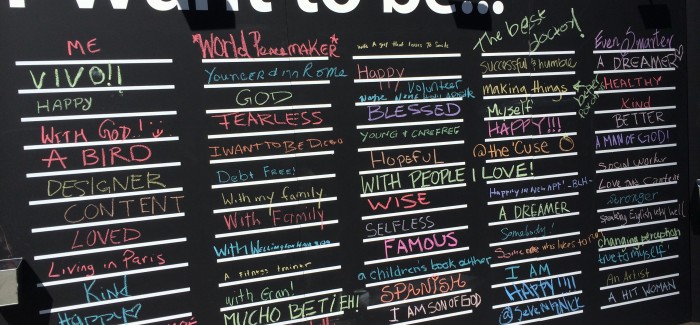 I want to be...
ME
VIVO!!
HAPPY
WITH GOD!
A BIRD
DESIGNER
CONTENT
LOVED
LIVING IN PARIS
Kind
HAPPY
*World Peacemaker*
GOD
FEARLESS
I WANT TO BE DIEGO
Debt Free!
With my family
With Family
With
A fitness trainer
with Gran!
MUCHO BETTEH!
with A guy that loves to smile
Happy
Volunteer
BLESSED
YOUNG & CAREFREE
HOPEFUL
WITH PEOPLE I LOVE!
WISE
SELFLESS
FAMOUS
a children's book author
SPANISH
I AM SON OF GOD
The best doctor!
successful & humble
making things
Myself
HAPPY!!!
@the 'Cuse
HAPPY IN NEW APT! -BLH-
A DREAMER
Somebody!
Someone who likes to
I AM
HAPPY!!!!
Even Smarter
A DREAMER
HEALTHY
Kind
BETTER
A MAN OF GOD!
Social Worker
Stronger
speaking English very well
changing perception
true to myself!
An Artist
A HIT WOMAN